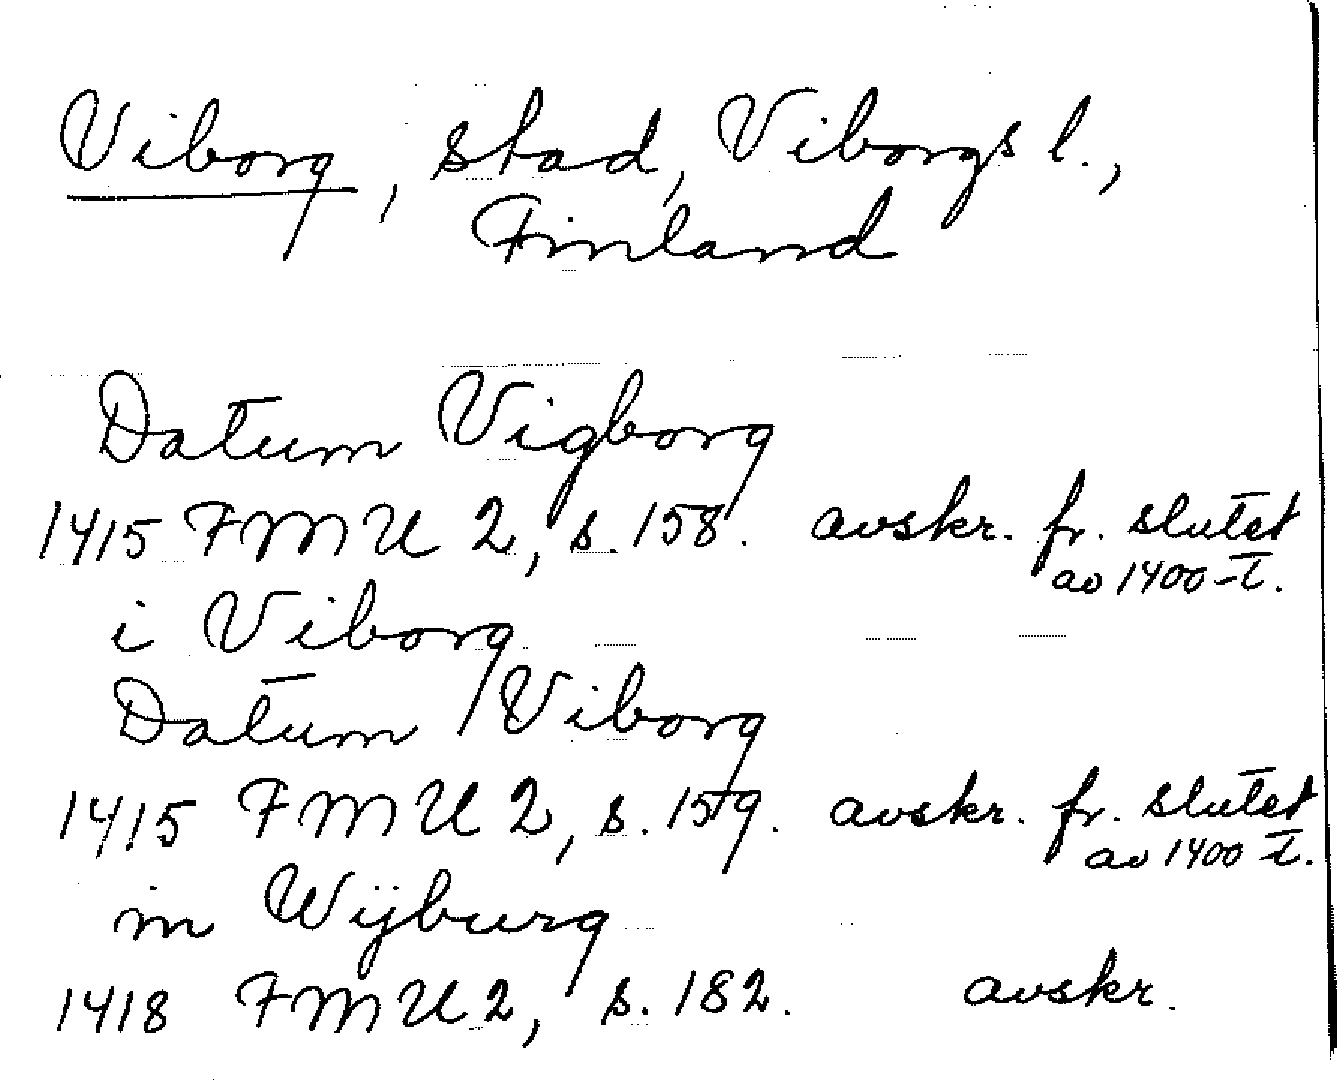 Viborg, stad, Viborgs l.,
Finland
Datum Vigborg
1415 FMU 2, s. 158. avskr. fr. slutet
av 1400-t.
i Viborg
Datum Viborg
1415 FMU 2, s. 159. avskr. fr. slutet
av 1400 t.
in Wijburg
1418 FMU 2, s. 182. avskr.